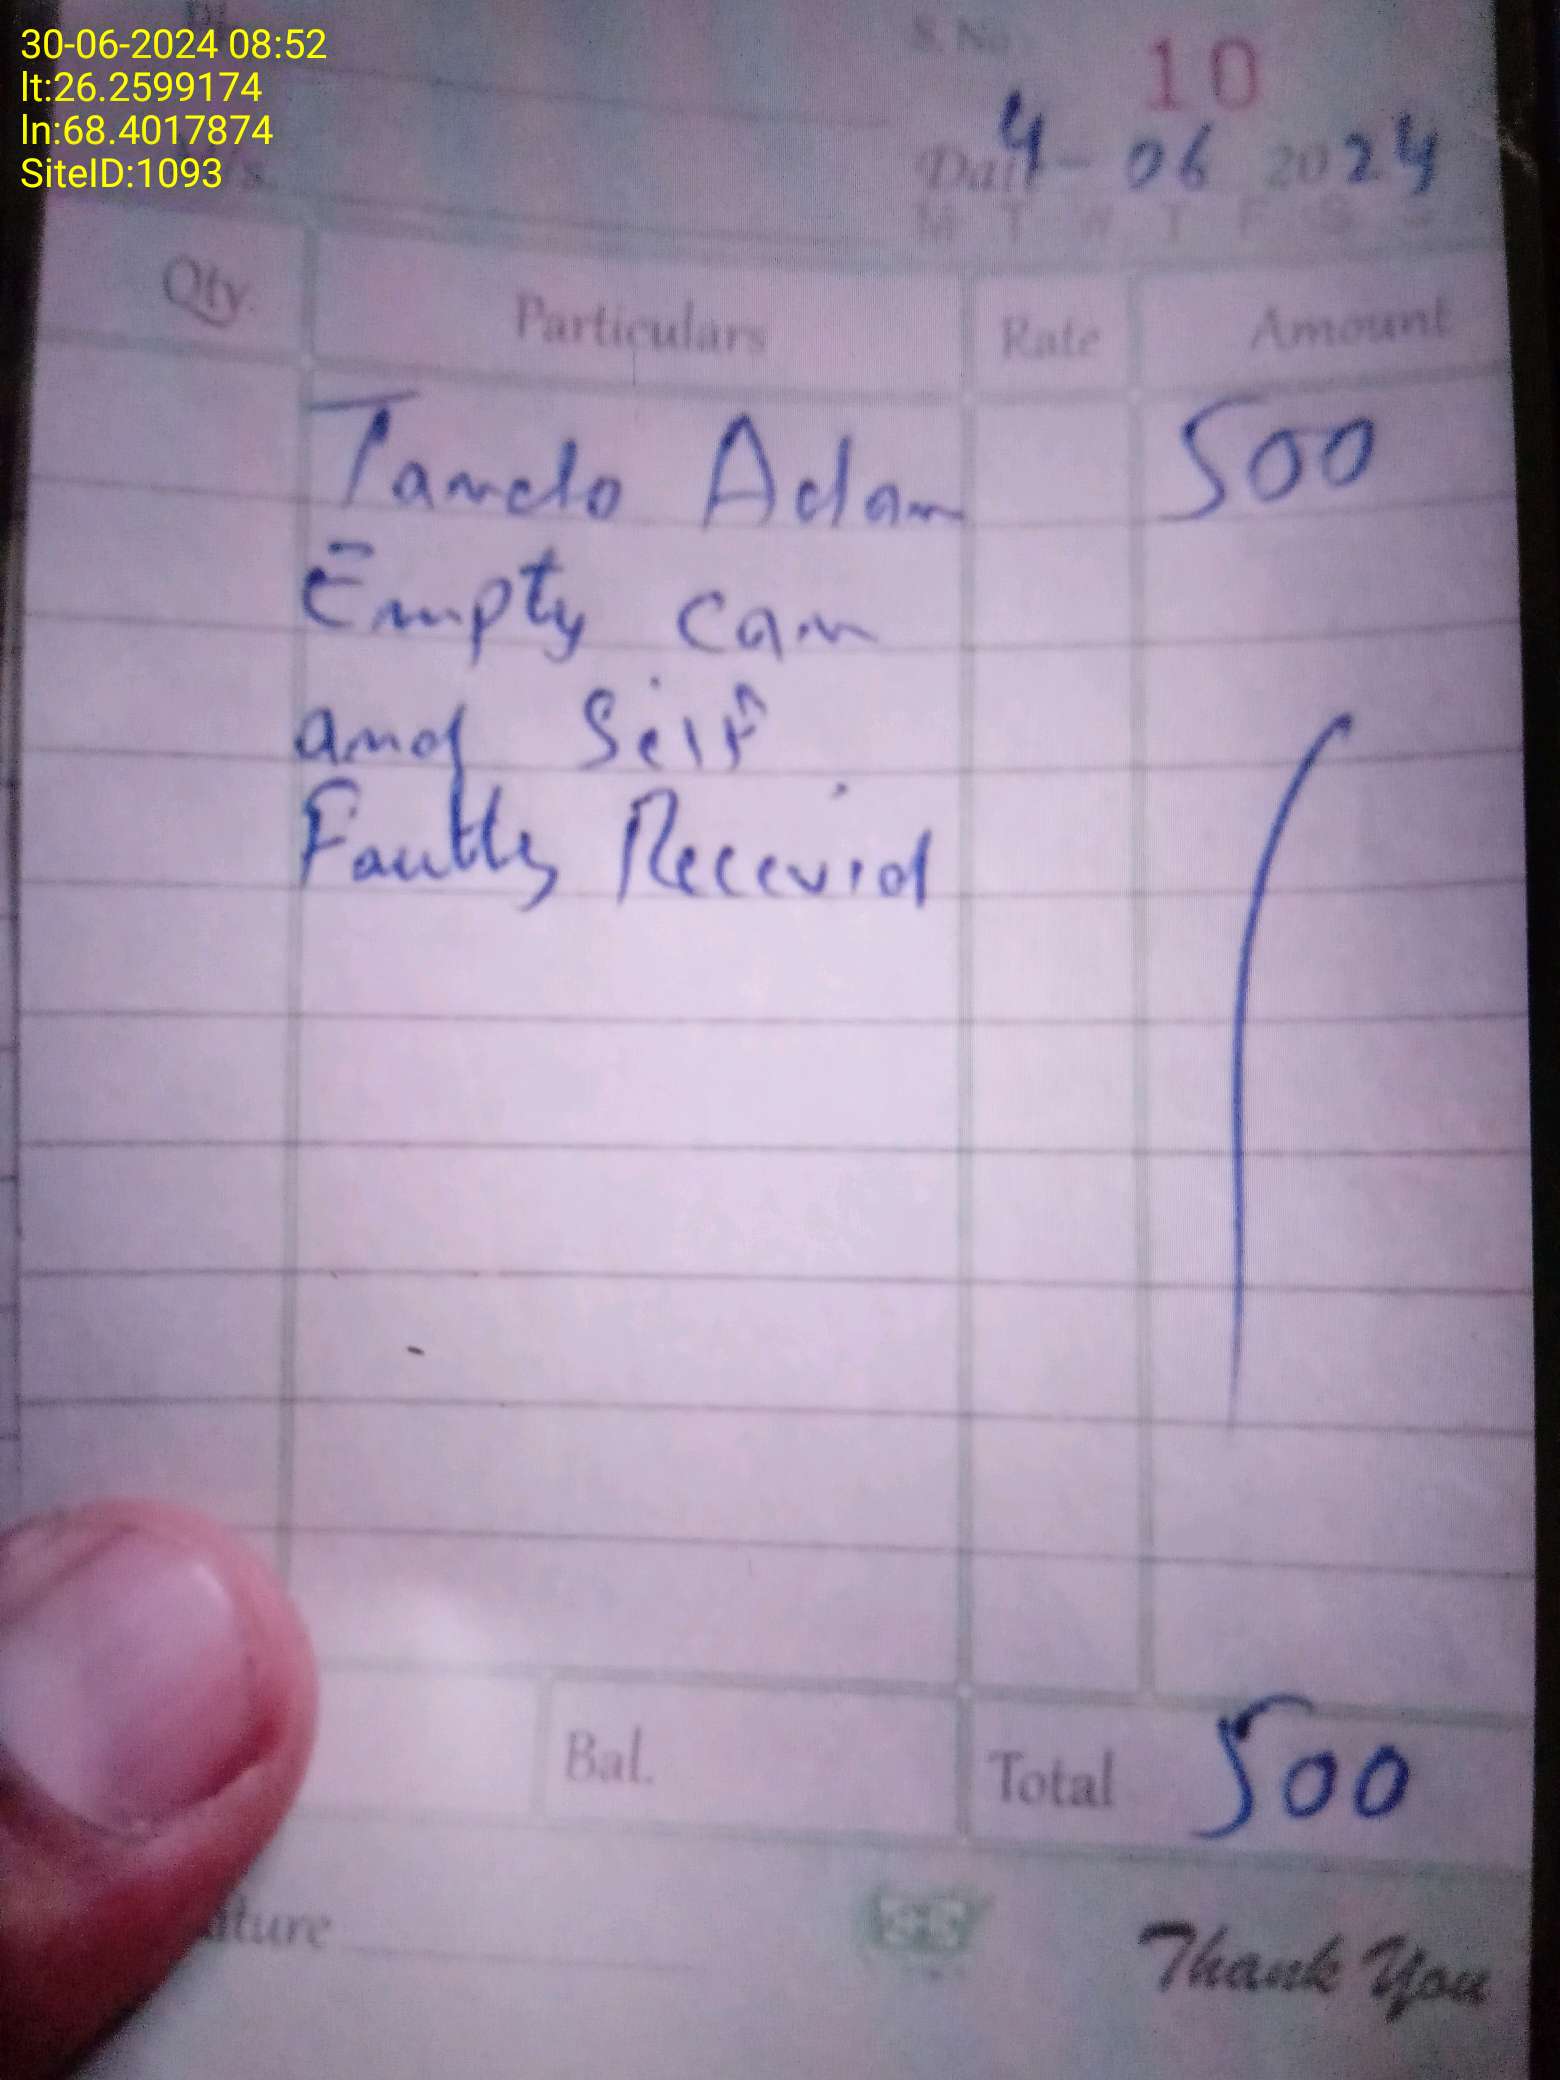 30-06-2024 08:52
lt:26.2599174
ln:68.4017874
SiteID:1093
S.No. 10
Date 4-06 2024
M T W T F S S
Qty. Particulars Rate Amount
Tando Adam 500
Empty can
and Self
Faulty Recevid
Bal. Total 500
ture
Thank You